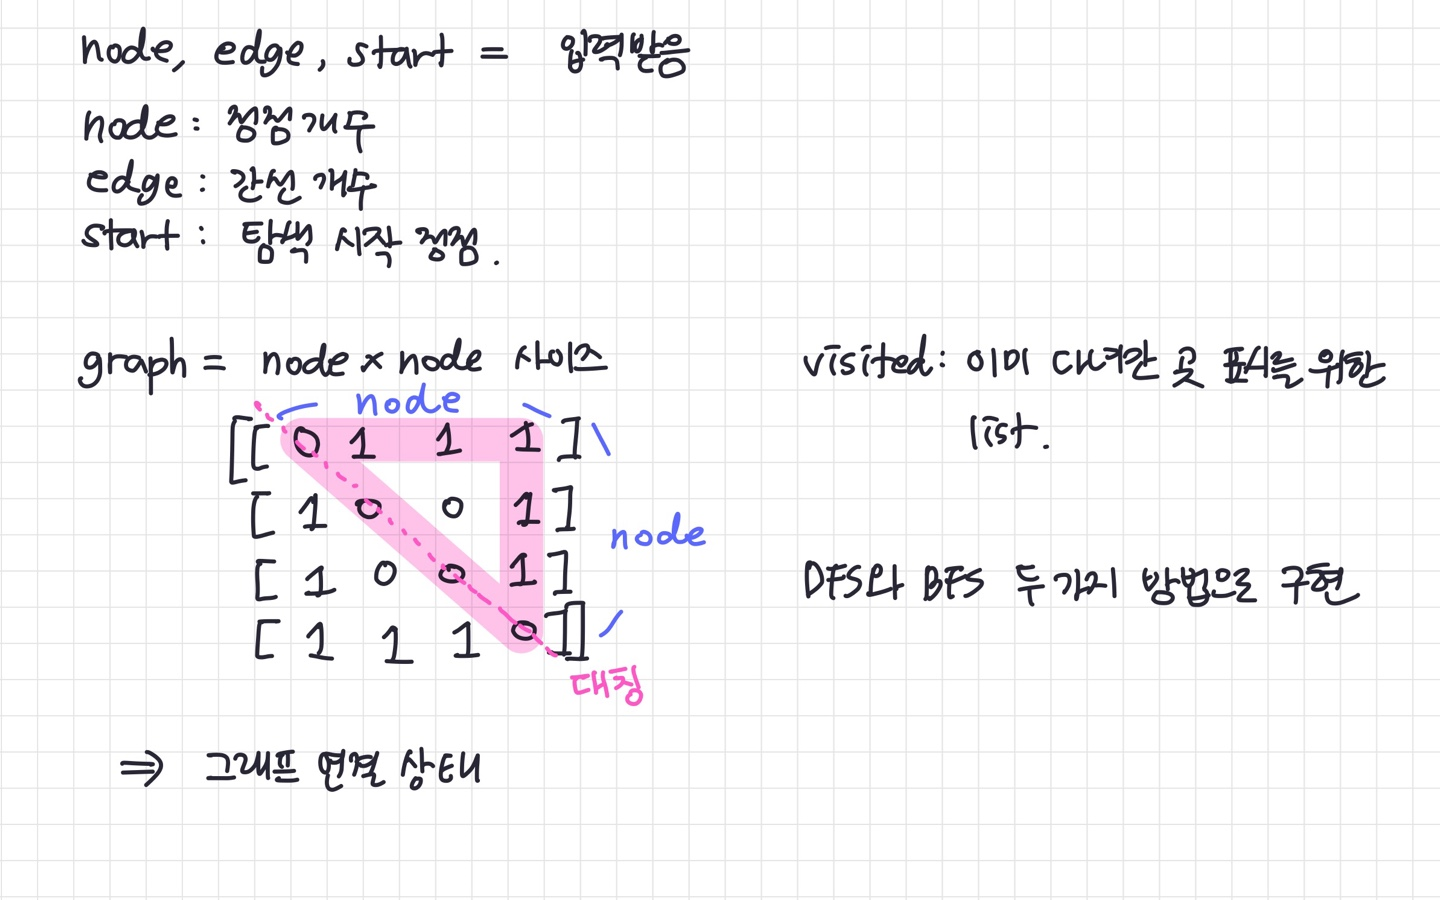 node, edge, start = 입력받음
node : 정점 개수
edge : 간선 개수
start : 탐색 시작 정점.
graph = node x node 사이즈
node
[[ 0 1 1 1 ]
[ 1 0 0 1 ]
[ 1 0 0 1 ]
[ 1 1 1 0 ]]
node
대칭
⇒ 그래프 연결 상태
visited : 이미 다녀간 곳 표시를 위한
list.
DFS와 BFS 두가지 방법으로 구현